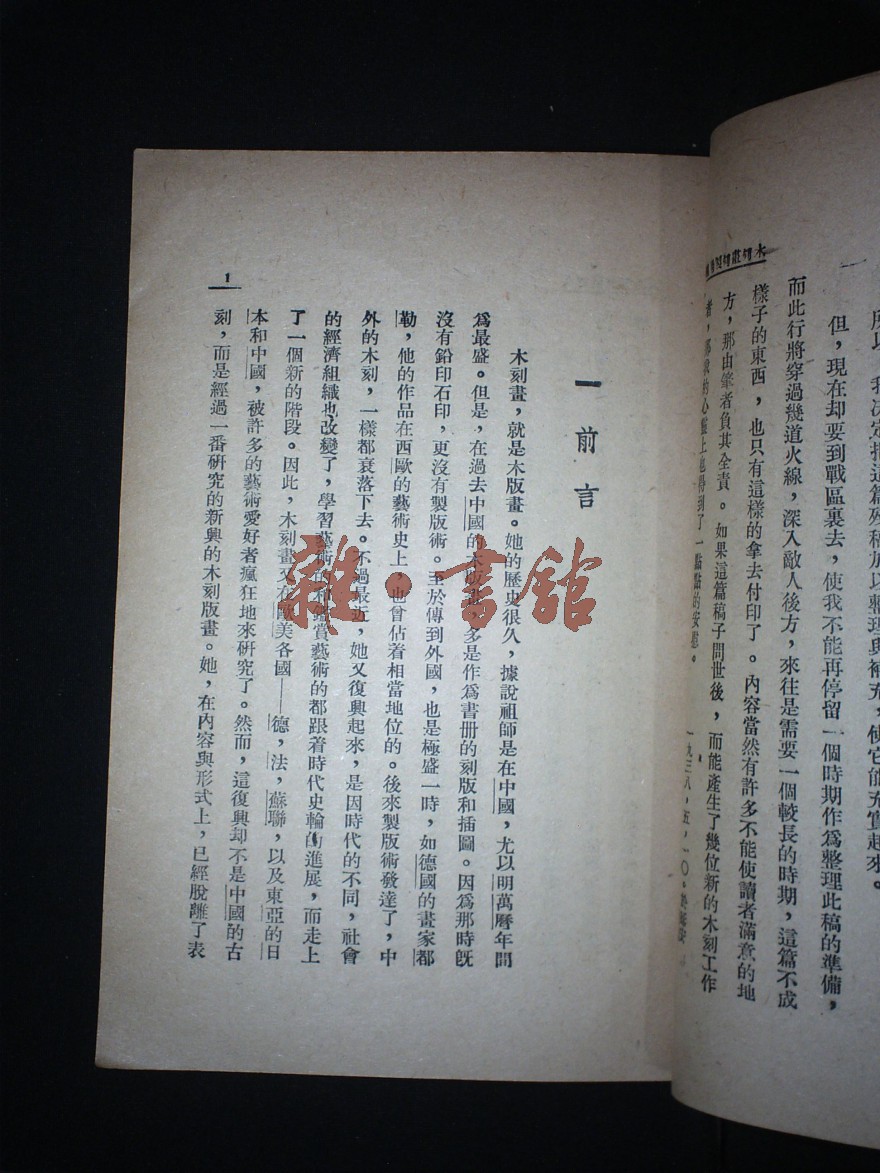 所以，我決定把這篇殘稿加以整理與補充，使它能充實起來。
但，現在却要到戰區裏去，使我不能再停留一個時期作爲整理此稿的準備，
而此行將穿過幾道火線，深入敵人後方，來往是需要一個較長的時期，這篇不成
樣子的東西，也只有這樣的拿去付印了。內容當然有許多不能使讀者滿意的地
方，那由筆者負其全責。如果這篇稿子問世後，而能產生了幾位新的木刻工作
者，那我的心靈上也得到了一點點的安慰。
一九三八，五，一〇。
一 前言
木刻畫，就是木版畫。她的歷史很久，據說祖師是在中國，尤以明萬曆年間
爲最盛。但是，在過去中國的木版畫，多是作爲書册的刻版和插圖。因爲那時旣
沒有鉛印石印，更沒有製版術。至於傳到外國，也是極盛一時，如德國的畫家都
勒，他的作品在西歐的藝術史上，也曾佔着相當地位的。後來製版術發達了，中
外的木刻，一樣都衰落下去。不過最近，她又復興起來，是因時代的不同，社會
的經濟組織也改變了，學習藝術的和鑑賞藝術的都跟着時代史輪的進展，而走上
了一個新的階段。因此，木刻畫又在歐美各國——德，法，蘇聯，以及東亞的日
本和中國，被許多的藝術愛好者瘋狂地來研究了。然而，這復興却不是中國的古
刻，而是經過一番研究的新興的木刻版畫。她，在內容與形式上，已經脫離了表
1
雜·書館